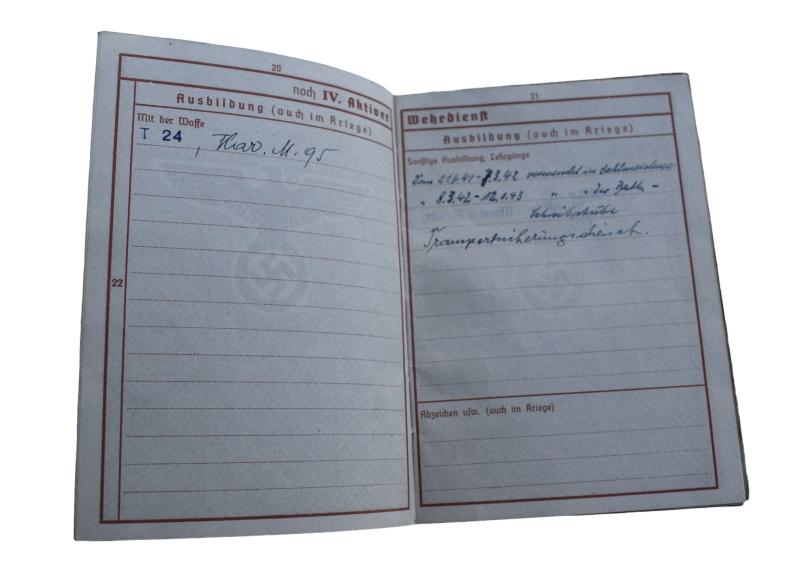 20
noch IV. Aktiver
Ausbildung (auch im Kriege)
Mit der Waffe
T 24, Kar. M. 95
22
21
Wehrdienst
Ausbildung (auch im Kriege)
Sonstige Ausbildung, Lehrgänge
Vom 21.6.41 - 7.3.42 verwendet in Zahlmeisterei
" 8.3.42 - 12.1.43 " " der Battr. -
Schreibstube
Transportsicherungsdienst.
Abzeichen usw. (auch im Kriege)